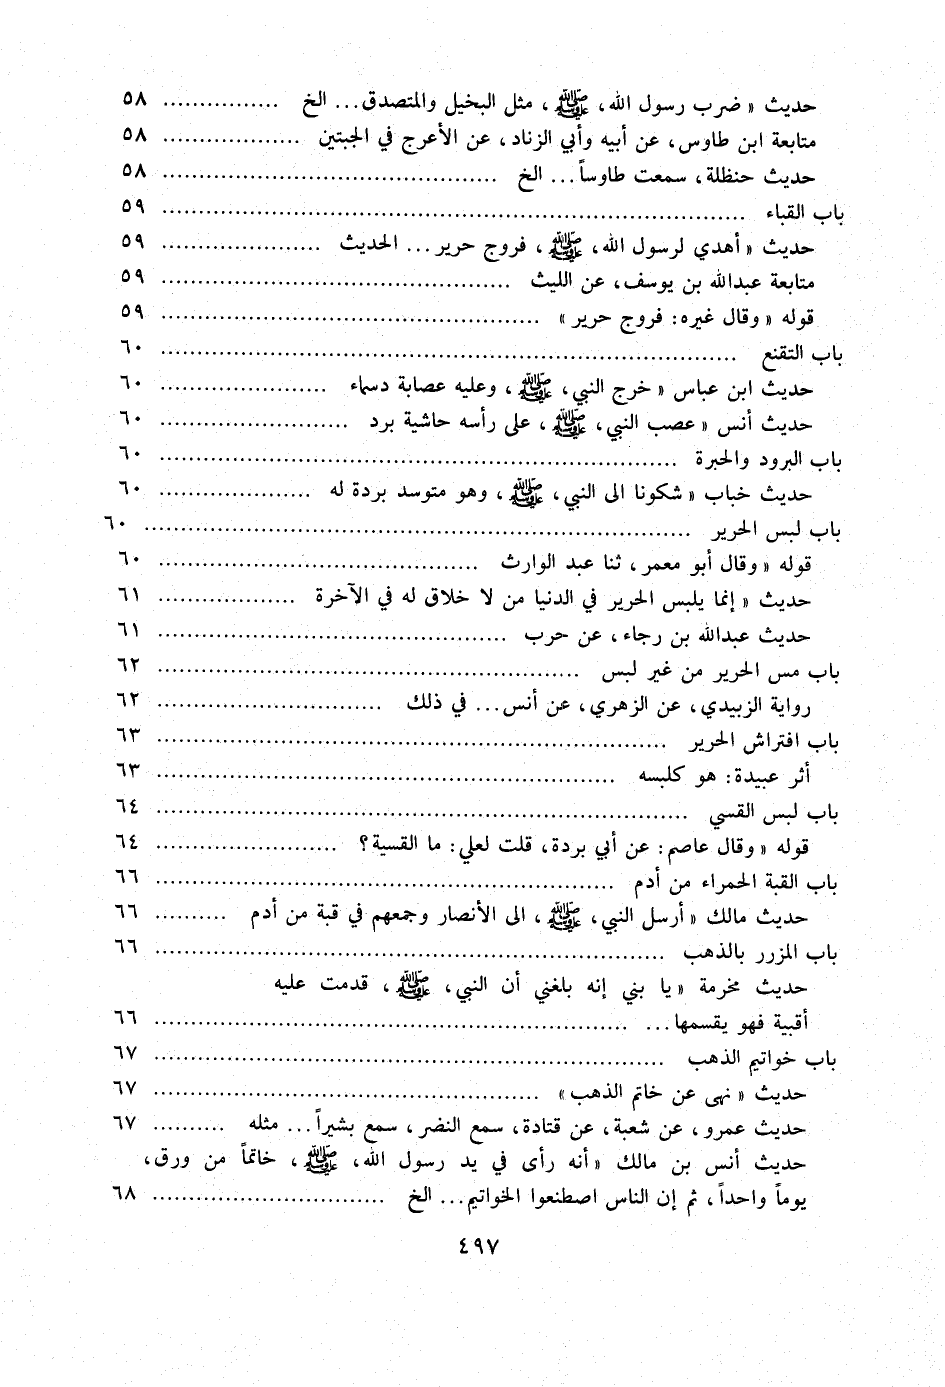 حديث « ضرب رسول الله، ﷺ، مثل البخيل والمتصدق... الخ ............... ٥٨
متابعة ابن طاوس، عن أبيه وأبي الزناد، عن الأعرج في الجبتين ................... ٥٨
حديث حنظلة، سمعت طاوساً... الخ ............................................. ٥٨
باب القباء ................................................................................ ٥٩
حديث « أهدي لرسول الله، ﷺ، فروج حرير... الحديث ...................... ٥٩
متابعة عبدالله بن يوسف، عن الليث ................................................ ٥٩
قوله « وقال غيره: فروج حرير » .................................................... ٥٩
باب التقنع ............................................................................... ٦٠
حديث ابن عباس « خرج النبي، ﷺ، وعليه عصابة دسماء ....................... ٦٠
حديث أنس « عصب النبي، ﷺ، على رأسه حاشية برد .......................... ٦٠
باب البرود والحبرة ....................................................................... ٦٠
حديث خباب « شكونا الى النبي، ﷺ، وهو متوسد بردة له ..................... ٦٠
باب لبس الحرير ........................................................................... ٦٠
قوله « وقال أبو معمر، ثنا عبد الوارث ............................................ ٦٠
حديث « إنما يلبس الحرير في الدنيا من لا خلاق له في الآخرة ................... ٦١
حديث عبدالله بن رجاء، عن حرب ................................................ ٦١
باب مس الحرير من غير لبس .......................................................... ٦٢
رواية الزبيدي، عن الزهري، عن أنس... في ذلك ............................... ٦٢
باب افتراش الحرير ...................................................................... ٦٣
أثر عبيدة: هو كلبسه ............................................................... ٦٣
باب لبس القسي ......................................................................... ٦٤
قوله « وقال عاصم: عن أبي بردة، قلت لعلي: ما القسية؟ ......................... ٦٤
باب القبة الحمراء من أدم ............................................................... ٦٦
حديث مالك « أرسل النبي، ﷺ، الى الأنصار وجمعهم في قبة من أدم .......... ٦٦
باب المزرر بالذهب ...................................................................... ٦٦
حديث مخرمة « يا بني إنه بلغني أن النبي، ﷺ، قدمت عليه
أقبية فهو يقسمها... ................................................................. ٦٦
باب خواتيم الذهب ...................................................................... ٦٧
حديث « نهى عن خاتم الذهب » ..................................................... ٦٧
حديث عمرو، عن شعبة، عن قتادة، سمع النضر، سمع بشيراً... مثله .......... ٦٧
حديث أنس بن مالك « أنه رأى في يد رسول الله، ﷺ، خاتماً من ورق،
يوماً واحداً، ثم إن الناس اصطنعوا الخواتيم... الخ ................................ ٦٨
٤٩٧